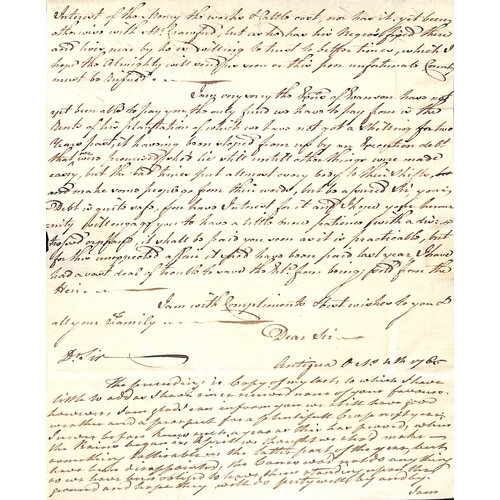 Interest of the money the works & Cattle cost, nor has it yet been
otherwise with Mr Crawford, but as he has his Negroes fixed there
and lives near by he is willing to trust to better times, which I
hope the Almighty will send for soon or this poor unfortunate Country
must be Ruined.
I am very sorry the Exors of Swanson have not
yet been able to pay you the only fund we have to pay from is the
Rent of his plantation of which we have not got a Shilling for two
Years past, it having been stoped from us by an Execution debt
that we were promised to lie still untill other things were made
easey, but the bad times put almost every body to their Shifts,
and make some people go from their words, but be assured Sir your
Debt is quite safe, you have Interest for it and I hope your human
enity will engage you to have a little more patience with a
it shall be paid you soon as it is practicable, but
for this unexpected affair it had been paid last year. I have
had a vast deal of trouble to save the from being forced from the
Heir.
I am with Compliments & best wishes to you &
all your Family
Dear Sir
Dr Sir
Antigua Octr 4th 1765
The preceeding is Copy of my last, to which I have
little to add as I have since none of your favours.
however, I am glad can inform you we still have good
weather and a prospect for a plentifull Crop next year.
I never before knew such a year as this has proved, when
the Rains began in April we thought we shod make
something tollerable in the latter part of the year, but
have been disappointed, the Canes wod not do any thing
so we have been obliged to leave them standing upon the
ground and hope they will do pretty well by and by.
I am